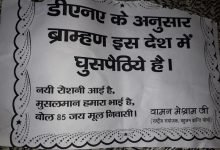 डीएनए के अनुसार
ब्राम्हण इस देश में
घुसपैठिये है।
नयी रोशनी आई है,
मुसलमान हमारा भाई है,
बोल 85 जय मूल निवासी।
वामन मेश्राम जी
राष्ट्रीय संयोजक, बहुजन क्रांति मोर्चा